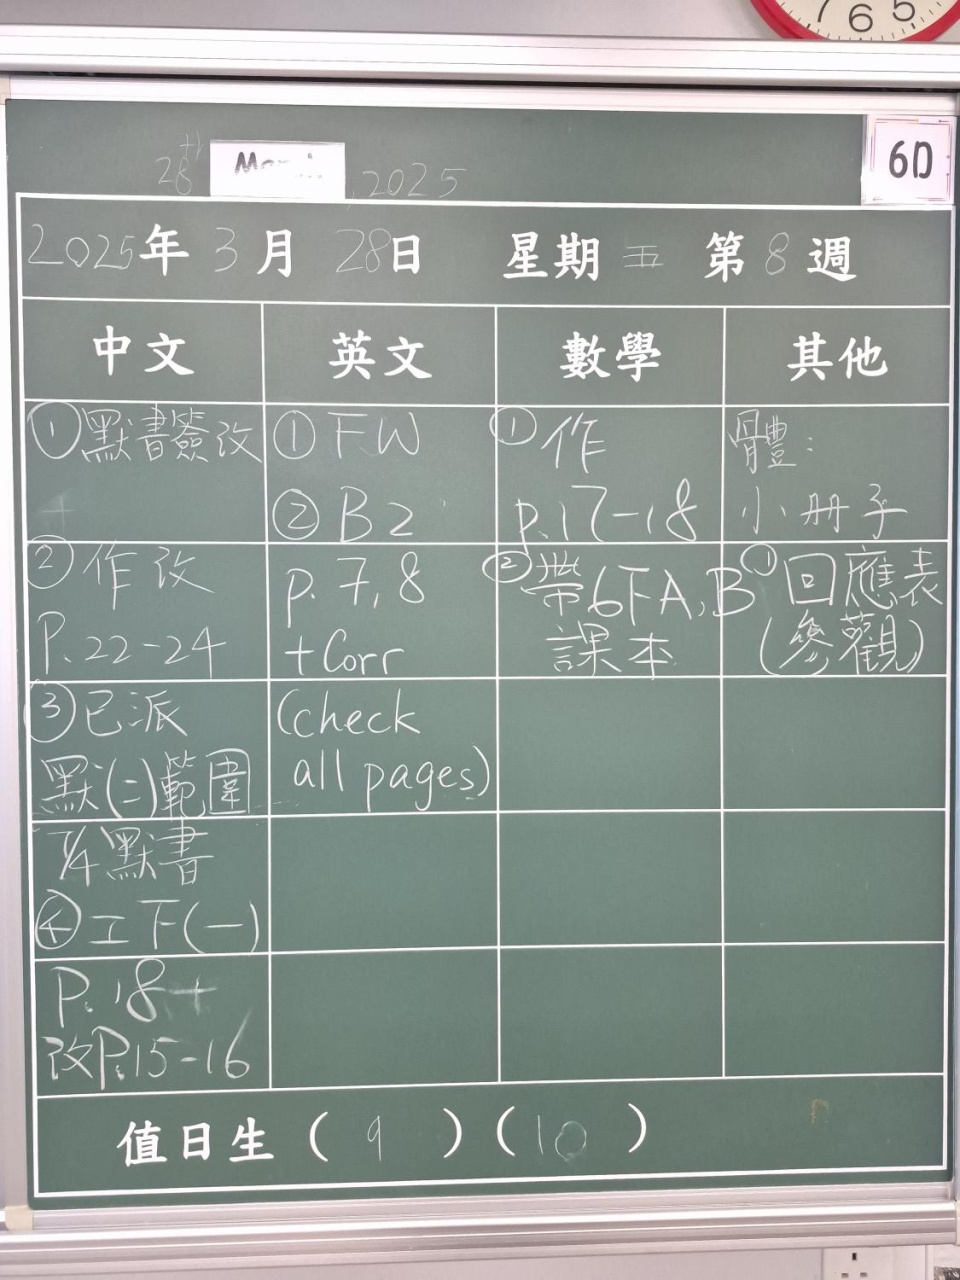 7 6 5
28th March, 2025
6D
2025年3月28日 星期五 第8週
中文 英文 數學 其他
①默書簽改
②作改
P.22-24
③已派
默(二)範圍
7/4默書
④工下(一)
P.18+
改P.15-16
①FW
②B2
p.7,8
+Corr
(check
all pages)
①作
p.17-18
②帶6FA,B
課本
體:
小冊子
①回應表
(參觀)
值日生(9)(10)